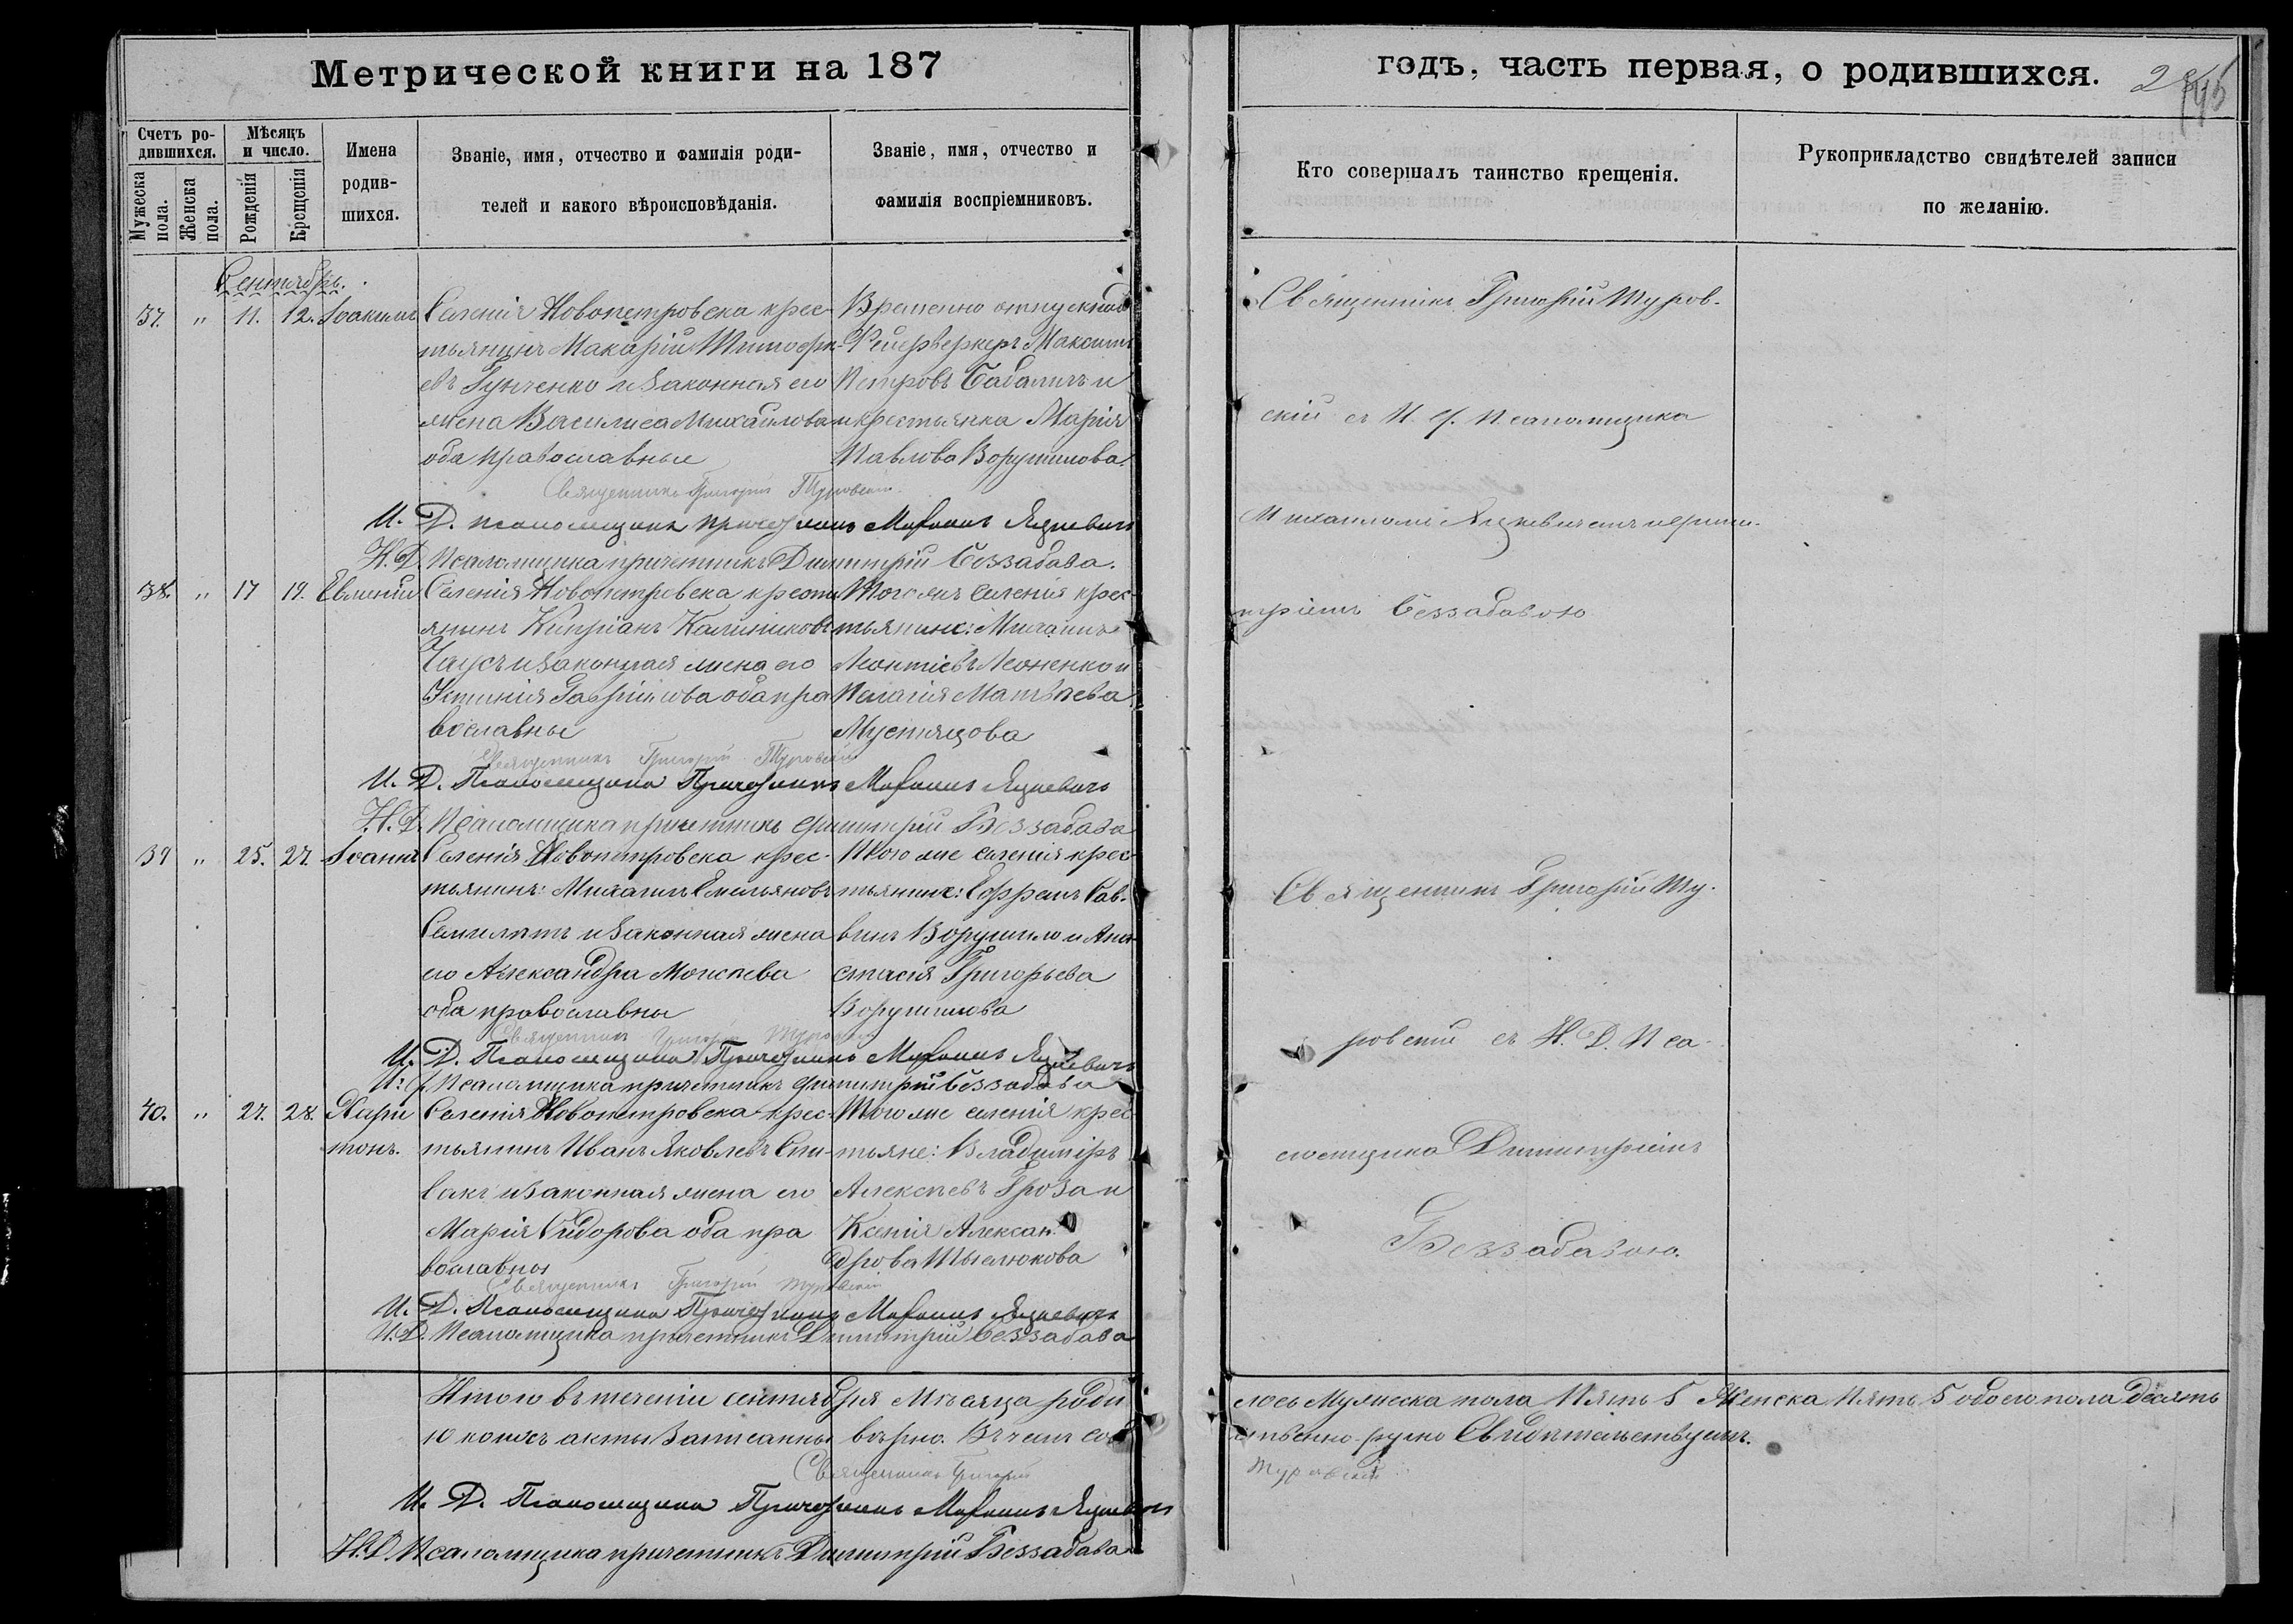 Метрической книги на 187
годъ, часть первая, о родившихся.
Счетъ родившихся.
Мѣсяцъ и число.
Имена родившихся.
Званіе, имя, отчество и фамилія родителей и какого вѣроисповѣданія.
Званіе, имя, отчество и фамилія воспріемниковъ.
Кто совершалъ таинство крещенія.
Рукоприкладство свидѣтелей записи по желанію.
Мужеска пола.
Женска пола.
Рожденія
Крещенія
Сентябрь.
37. " 11. 12. Іоакимъ
Селенія Новопетровска крес-
тьянинъ Макарій Тимофѣ-
евъ Гунченко и законная его
жена Василиса Михайлова
оба православные
Временно отпускной
Фейерверкеръ Максимъ
Петровъ Бабаличъ и
крестьянка Марія
Павлова Ворушилова.
Священникъ Григорій Туров-
скій съ И. Д. Псаломщика
Михаиломъ Яцкевичемъ и Дими-
тріемъ Беззабавою
Священникъ Григорій Туровскій
И. Д. псаломщика причетникъ Михаилъ Яцкевичъ
И. Д. Псаломщика причетникъ Димитрій Беззабава.
38. " 17 19. Евмений
Селенія Новопетровска кресть
янинъ Кипріанъ Калиниковъ
Чаусъ и законная жена его
Устинія Гавріилова оба пра
вославны
Того жъ селенія крес-
тьянинъ: Михаилъ
Леонтіевъ Леоненко и
Пелагія Матѣева
Мустяцова
Священникъ Григорій Туровскій
И. Д. Псаломщика Причетникъ Михаилъ Яцкевичъ
И. Д. Псаломщика причетникъ Димитрій Беззабава
39 " 25. 27. Іоаннъ
Селенія Новопетровска крес-
тьянинъ: Михаилъ Емельяновъ
Семилятъ и законная жена
его Александра Моисеева
оба православны
Того же селенія крес-
тьянинъ: Ефремъ Сав-
винъ Ворушило и Ана-
стасія Григорьева
Ворушилова
Священникъ Григорій Ту-
ровскій съ И. Д. Пса-
ломщика Димитріемъ
Беззабавою.
Священникъ Григорій Туровскій
И. Д. Псаломщика Причетникъ Михаилъ Яцкевичъ
И. Д. Псаломщика причетникъ Димитрій Беззабава
40. " 27. 28. Хари
тонъ.
Селенія Новопетровска крес-
тьянинъ Иванъ Яковлевъ Спи-
вакъ и законная жена его
Марія Сидорова оба пра
вославны
Того же селенія крес-
тьяне: Владиміръ
Алексѣевъ Гроза и
Ксенія Алексан-
дрова
Священникъ Григорій Туровскій
И. Д. Псаломщика Причетникъ Михаилъ Яцкевичъ
И. Д. Псаломщика причетникъ Димитрій Беззабава
Итого въ теченіи сентября мѣсяца роди лось Мужеска пола Пять 5 Женска Пять 5 обоего пола Десять
10 коихъ акты записанны вѣрно. Въ чемъ соб ственно ручно Свидѣтельствуемъ.
Священникъ Григорій Туровскій
И. Д. Псаломщика Причетникъ Михаилъ Яцкевичъ
И. Д. Псаломщика причетникъ Димитрій Беззабава